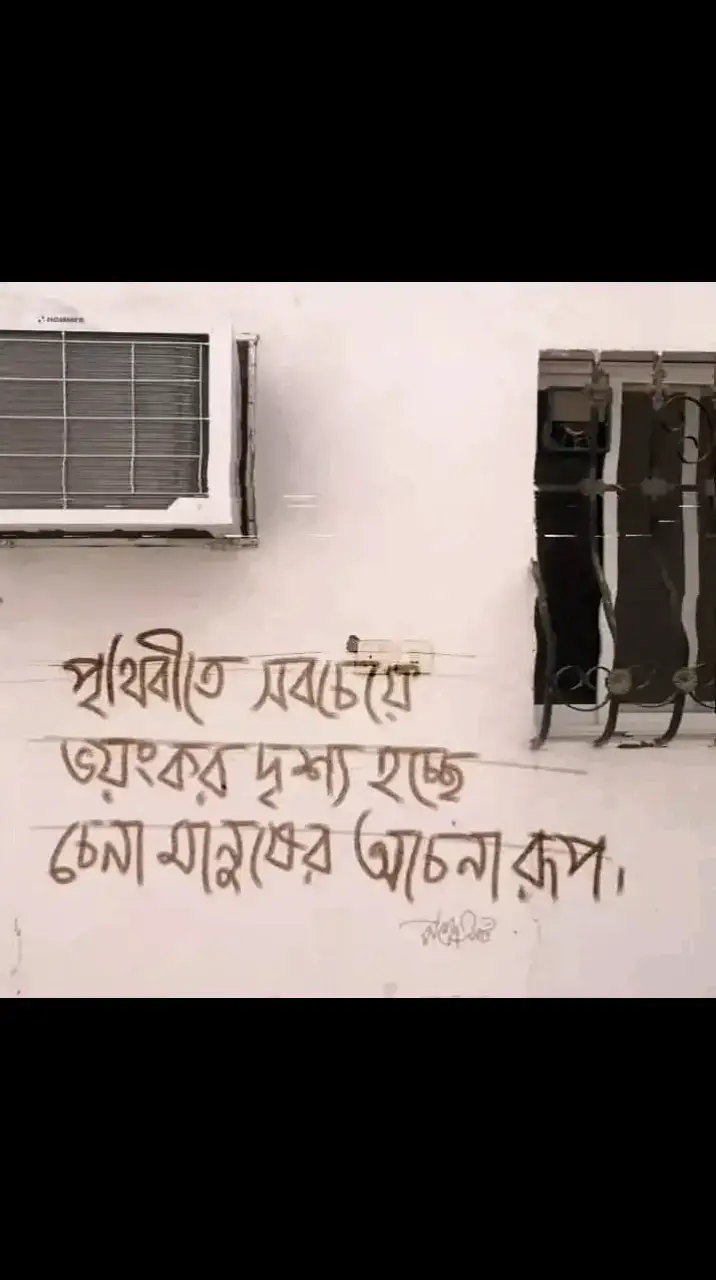 পৃথিবীতে সবচেয়ে
ভয়ংকর দৃশ্য হচ্ছে
চেনা মানুষের অচেনা রূপ।